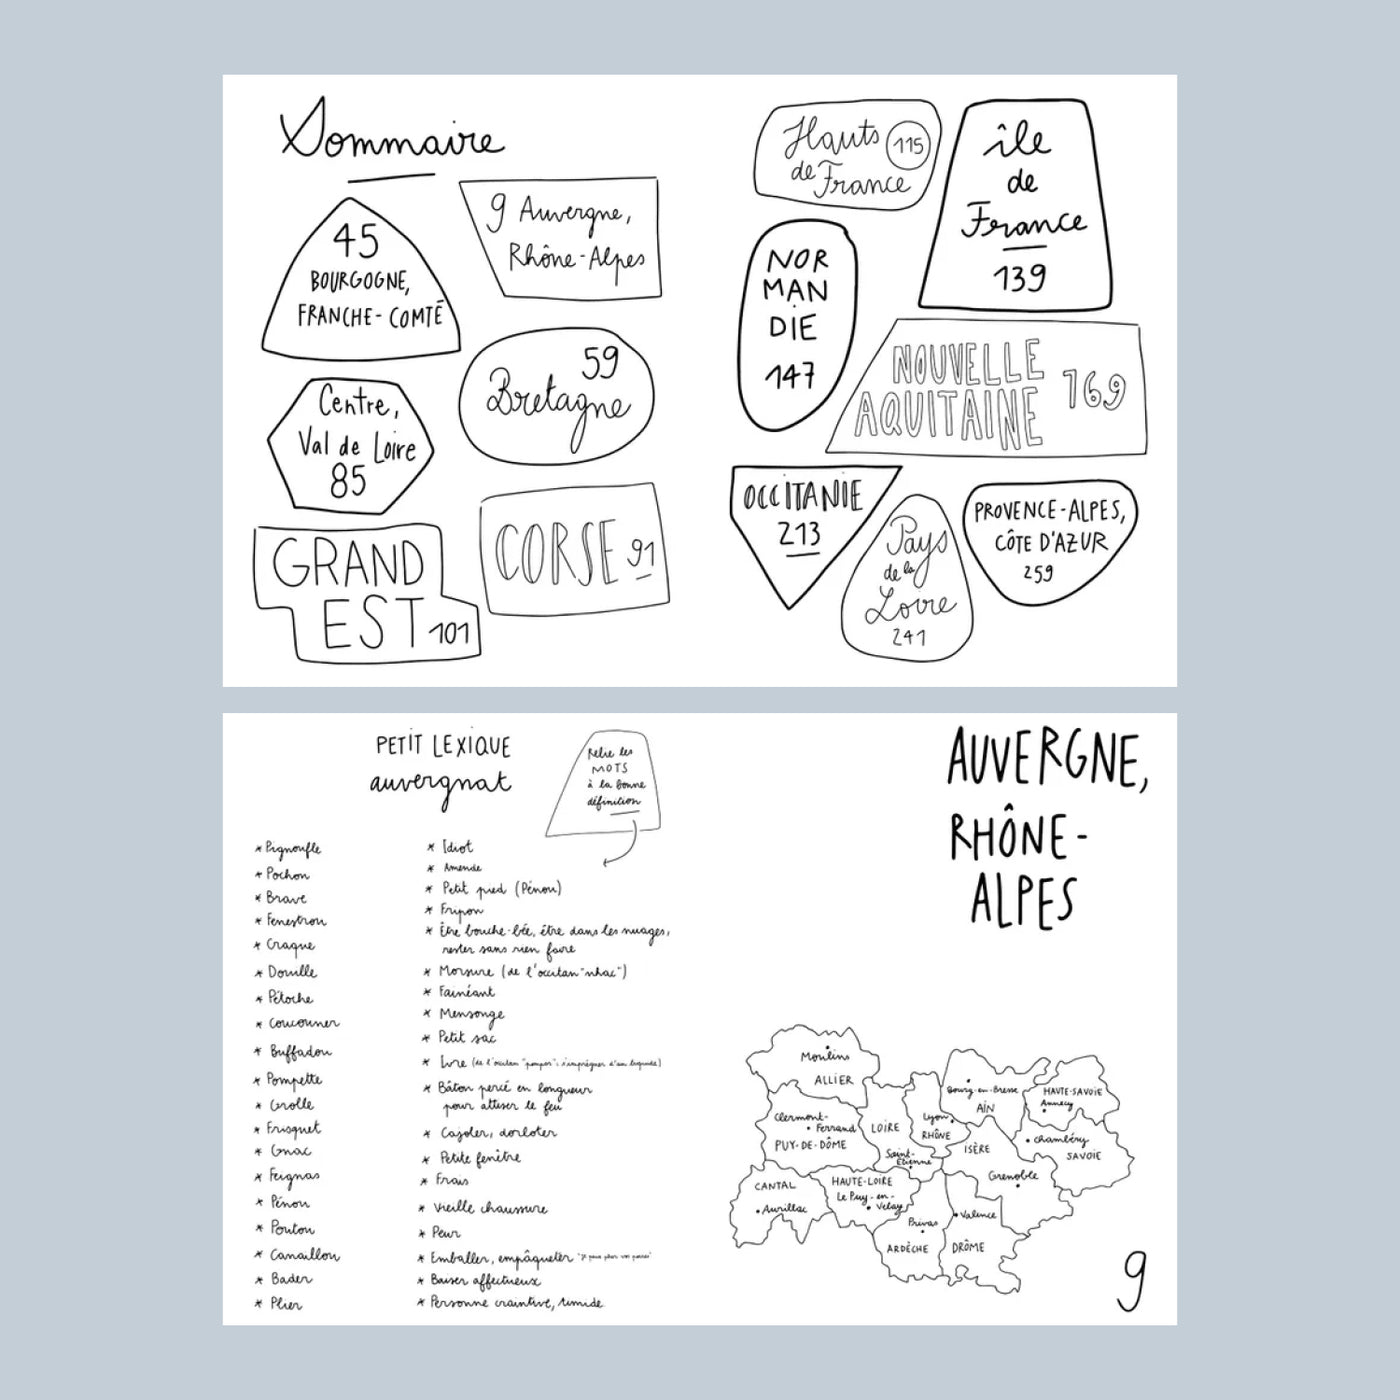 Sommaire
45
BOURGOGNE,
FRANCHE-COMTÉ
9 Auvergne,
Rhône-Alpes
Centre,
Val de Loire
85
59
Bretagne
GRAND
EST 101
CORSE 91
Hauts
de France
115
île
de
France
139
NOR
MAN
DIE
147
NOUVELLE
AQUITAINE
169
OCCITANIE
213
Pays
de la
Loire
241
PROVENCE-ALPES,
CÔTE D'AZUR
259
PETIT LEXIQUE
auvergnat
Relie les
MOTS
à la bonne
définition
* Pignoufle
* Pochon
* Brave
* Fenestrou
* Craque
* Douille
* Pétoche
* Coucouner
* Buffadou
* Pompette
* Grolle
* Frisquet
* Gnac
* Feignas
* Pénou
* Poutou
* Canaillou
* Bader
* Plier
* Idiot
* Amende
* Petit pied (Pénou)
* Fripon
* Être bouche-bée, être dans les nuages,
rester sans rien faire
* Morsure (de l'occitan "nhac")
* Fainéant
* Mensonge
* Petit sac
* Ivre (de l'occitan "pompar": s'imprégner d'un liquide)
* Bâton percé en longueur
pour attiser le feu
* Cajoler, dorloter
* Petite fenêtre
* Frais
* Vieille chaussure
* Peur
* Emballer, empâqueter
* Baiser affectueux
* Personne craintive, timide
AUVERGNE,
RHÔNE-
ALPES
Moulins
ALLIER
Clermont-
Ferrand
PUY-DE-DÔME
LOIRE
Saint-
Étienne
Lyon
RHÔNE
Bourg-en-Bresse
AIN
HAUTE-SAVOIE
Annecy
Chambéry
SAVOIE
ISÈRE
Grenoble
CANTAL
Aurillac
HAUTE-LOIRE
Le Puy-en-
Velay
Privas
ARDÈCHE
Valence
DRÔME
9